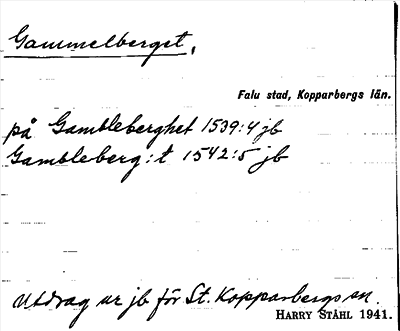 Gammelberget,
Falu stad, Kopparbergs län.
på Gambleberghet 1539:4 jb
Gambleberg:t 1542:5 jb
Utdrag ur jb för St. Kopparbergs sn.
HARRY STÅHL 1941.